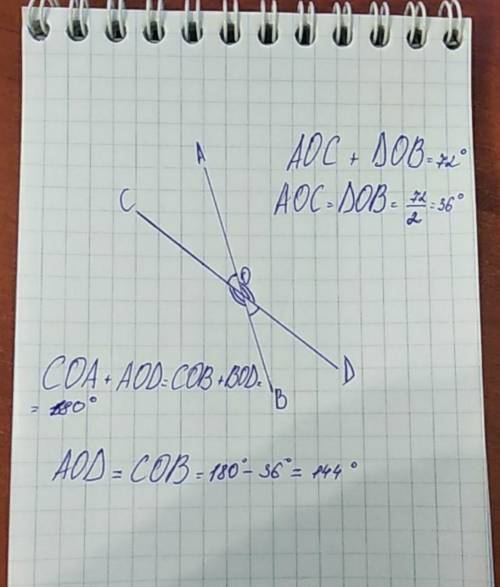 A
AOC + DOB = 72°
C
AOC = DOB = 72/2 = 36°
O
COA + AOD = COB + BOD =
D
= 180°
B
AOD = COB = 180° - 36° = 144°